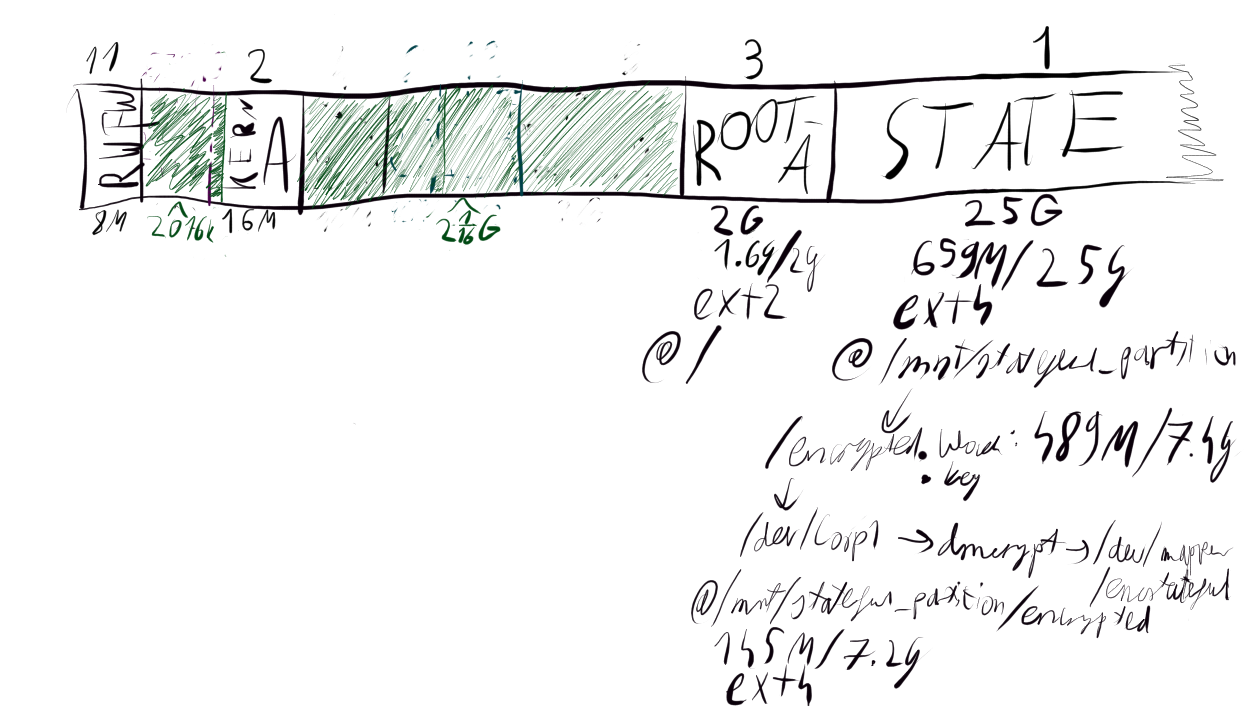 11 2 3 1
RWFW KERN A ROOT-A STATE
8M 2016k 16M 2 1/16 G 2G 25G
1.6g/2g 659M/25g
ext2 ext4
@ / @ /mnt/stateful_partition
/encrypted.block: 489M/7.4g
.key
/dev/loop1 → dmcrypt → /dev/mapper
/encstateful
@/mnt/stateful_partition/encrypted
145M/7.2g
ext4